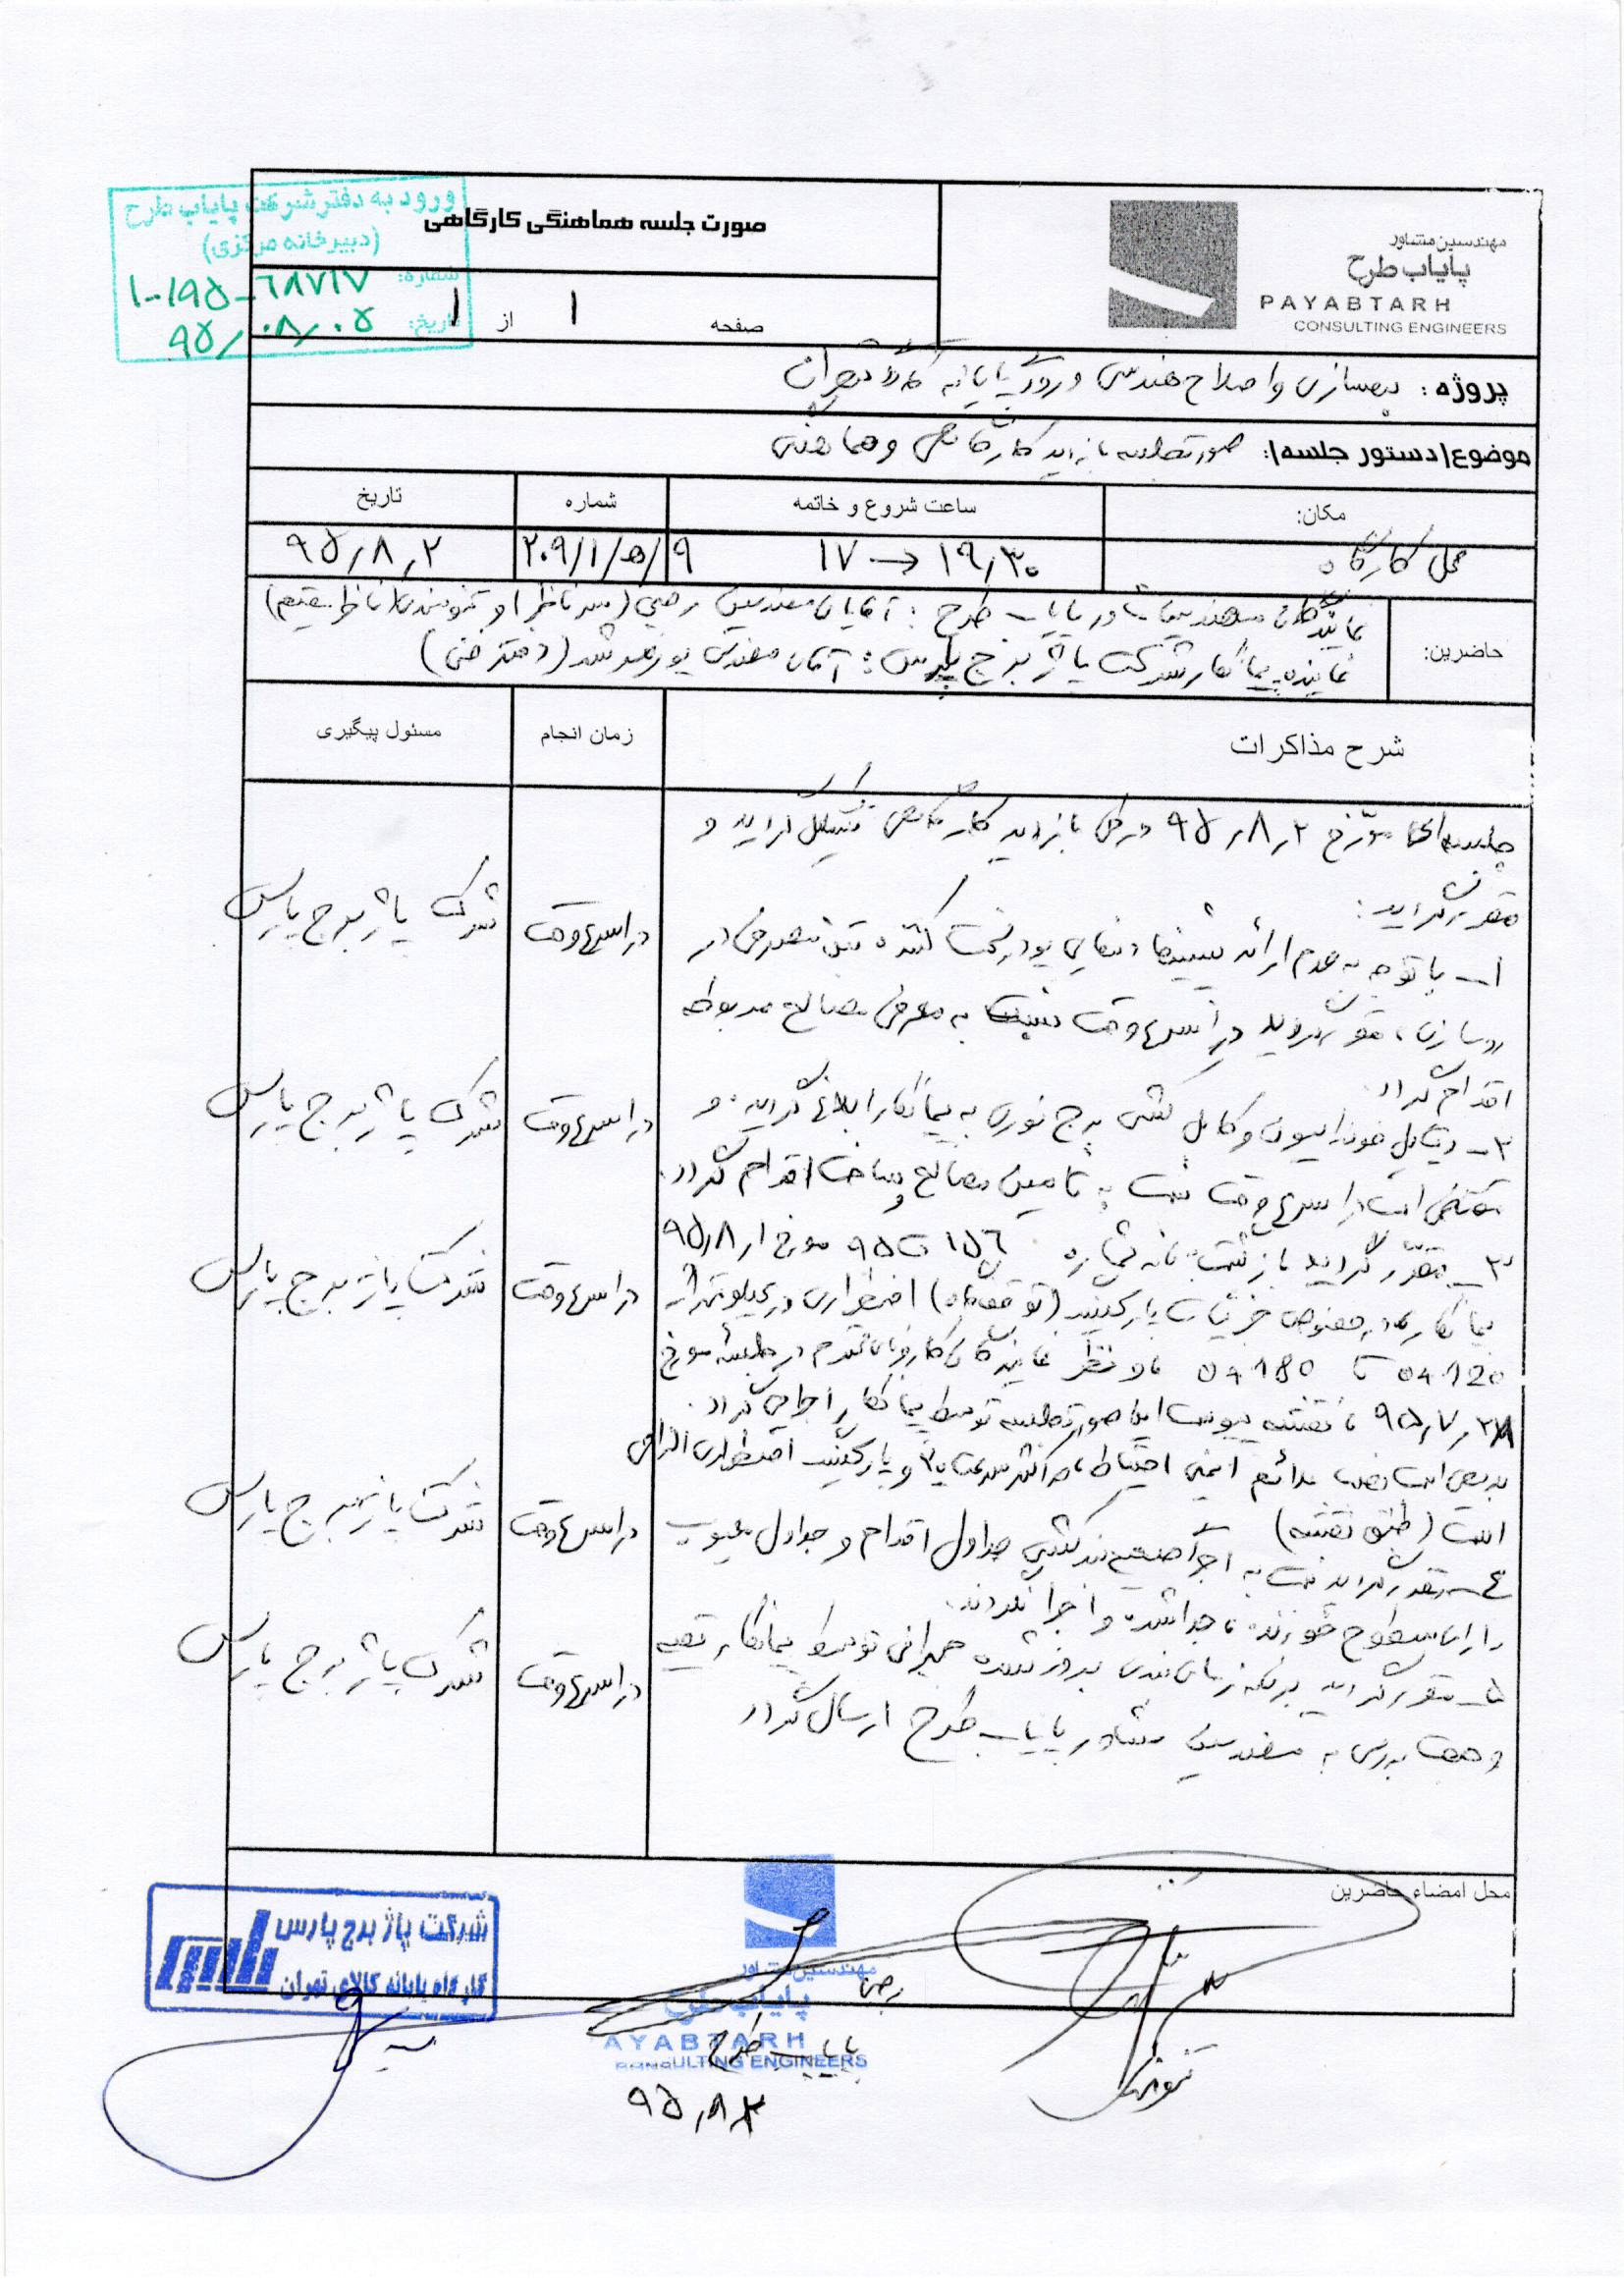 ورود به دفتر شرکت پایاب طرح
(دبیرخانه مرکزی)
شماره: ۱-۱۹۵-۶۸۷۱۷
تاریخ: ۹۵/۰۸/۰۵
صورت جلسه هماهنگی کارگاهی
صفحه ۱ از ۱
مهندسین مشاور
پایاب طرح
PAYABTARH
CONSULTING ENGINEERS
پروژه: بهسازی و اصلاح هندسی ورودی پایانه کالا تهران
موضوع/دستور جلسه/: صورتجلسه بازدید کارگاهی و هماهنگی
مکان: ساعت شروع و خاتمه شماره تاریخ
محل کارگاه ۱۷ → ۱۹,۳۰ ۲۰۹/۱/ه/۹ ۹۵,۸,۲
حاضرین:
نمایندگان مهندسین مشاور پایاب طرح: آقایان مهندسین رجبی (سرناظر) و تنومند (ناظر مقیم)
نماینده پیمانکار شرکت پاژ برج پارس: آقای مهندس (دفتر فنی)
شرح مذاکرات زمان انجام مسئول پیگیری
جلسه‌ای مورّخ ۹۵,۸,۲ در محل بازدید کارگاهی تشکیل گردید و
مقرر گردید:
۱- با توجه به عدم ارائه در
روسازی، مقرر گردید در اسرع وقت نسبت به معرفی مصالح مربوطه
اقدام گردد.
در اسرع وقت شرکت پاژ برج پارس
۲- دیتایل فونداسیون و کابل کشی برج نوری به پیمانکار ابلاغ گردید. و
مقتضی است در اسرع وقت نسبت به تامین مصالح و ساخت اقدام گردد.
در اسرع وقت شرکت پاژ برج پارس
۳- مقرّر گردید بازگشت به نامه شماره ۱۵۶ ت ۹۵ مورخ ۹۵,۸,۱
پیمانکار در خصوص جزئیات پارکینگ (توقفگاه) اضطراری در کیلومتراژ
0+120 تا 0+180 با نظر نمایندگان کارفرمای محترم در جلسه مورخ
۹۵,۷,۲۸ با نقشه پیوست این صورتجلسه توسط پیمانکار اجرا می گردد.
بدیهی است نصب علائم ایمنی احتیاط، حداکثر سرعت ۲۰ و پارکینگ اضطراری الزامی
است (طبق نقشه)
در اسرع وقت شرکت پاژ برج پارس
۴- مقرر گردید نسبت به اجرا بندکشی جداول اقدام و جداول معیوب
دارای سطوح جدا شده و اجرا گردند.
در اسرع وقت شرکت پاژ برج پارس
۵- مقرر گردید برنامه زمان بندی بروز شده جبرانی توسط پیمانکار تهیه
و جهت بررسی به مهندسین مشاور پایاب طرح ارسال گردد
در اسرع وقت شرکت پاژ برج پارس
محل امضاء حاضرین
شرکت پاژ برج پارس
کارگاه پایانه کالای تهران
مهندسین مشاور
پایاب طرح
AYABTARH
CONSULTING ENGINEERS
پایاب طرح
تنومند